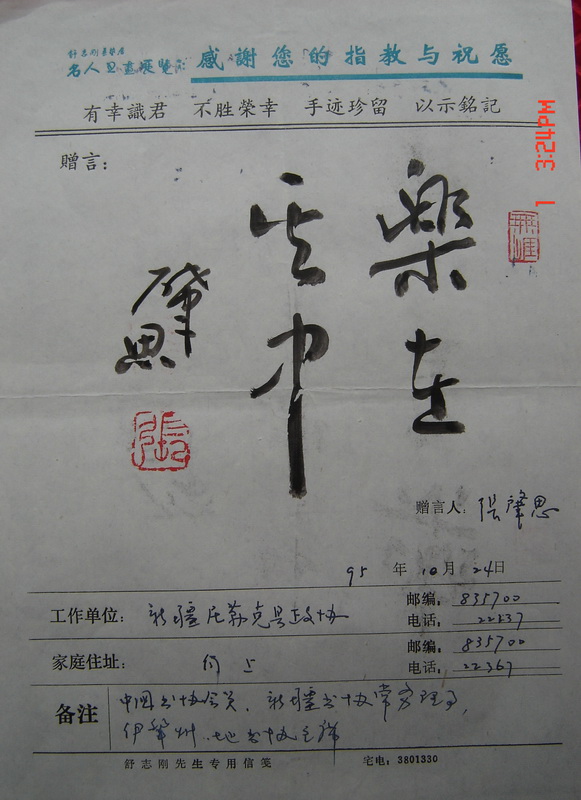 舒志刚真荣君
名人墨迹展覽: 感謝您的指教与祝愿
有幸識君 不胜榮幸 手迹珍留 以示銘記
赠言:
樂在
其中
肇思
張
赠言人: 张肇思
95 年 10 月 24 日
工作单位: 新疆尼勒克县政协
邮编: 835700
电话: 22237
家庭住址: 同上
邮编: 835700
电话: 22367
备注
中国书协会员、新疆书协常务理事,
伊犁州、地书协主席
舒志刚先生专用信笺 宅电: 3801330
3:24PM